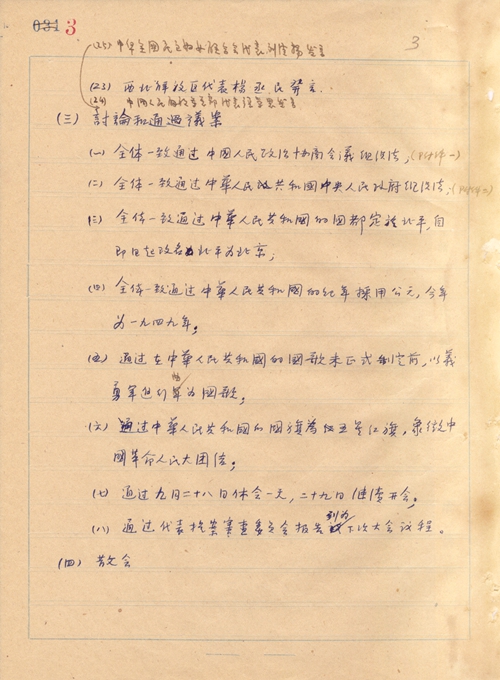 031 3
3
(25) 中华全国民主妇女联合会代表刘清扬发言
(23) 西北解放区代表杨永民发言.
(24) 中国人民解放军
(三) 討論和通過議案
(一) 全体一致通过中國人民政治协商会議組织法;(附件一)
(二) 全体一致通过中華人民共和國中央人民政府組织法;(附件二)
(三) 全体一致通过中華人民共和國的國都定於北平,自
即日起改名北平为北京;
(四) 全体一致通过中華人民共和國的纪年採用公元,今年
为一九四九年。
(五) 通过在中華人民共和國的國歌未正式制定前,以義
勇军進行曲为國歌。
(六) 通过中華人民共和國的國旗为红五星红旗,象徵中
國革命人民大团结。
(七) 通过九月二十八日休会一天,二十九日继续开会。
(八) 通过代表提案審查委員会报告列为下次大会议程。
(四) 散会